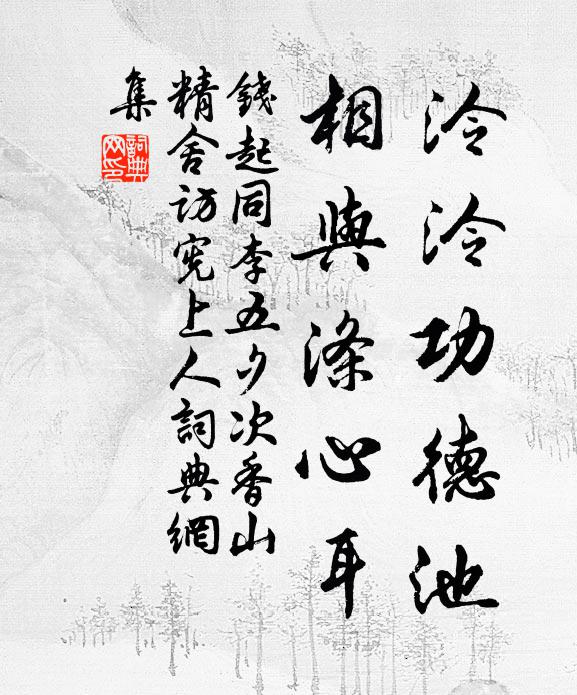 泠泠功德池
相與滌心耳
錢起同李五夕次香山
精舍訪憲上人詞典網
集
詞典網印